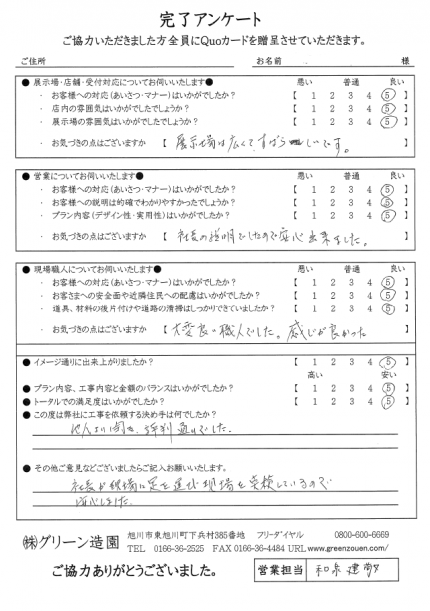 完了アンケート
ご協力いただきました方全員にQuoカードを贈呈させていただきます。
ご住所 お名前 様
● 展示場・店舗・受付対応についてお伺いいたします● 悪い 普通 良い
・ お客様への対応(あいさつ・マナー)はいかがでしたか? 【 1 2 3 4 5 】
・ 店内の雰囲気はいかがでしたでしょうか? 【 1 2 3 4 5 】
・ 展示場の雰囲気はいかがでしたか? 【 1 2 3 4 5 】
・ お気づきの点はございますか 【 展示場は広くてすばらしいです。 】
● 営業についてお伺いいたします● 悪い 普通 良い
・ お客様への対応(あいさつ・マナー)はいかがでしたか? 【 1 2 3 4 5 】
・ お客様への説明は的確でわかりやすかったでしょうか? 【 1 2 3 4 5 】
・ プラン内容(デザイン性・実用性)はいかがでしたか? 【 1 2 3 4 5 】
・ お気づきの点はございますか 【 社長の説明でしたので安心出来ました。 】
● 現場職人についてお伺いいたします● 悪い 普通 良い
・ お客様への対応(あいさつ・マナー)はいかがでしたか? 【 1 2 3 4 5 】
・ お客さまへの安全面や近隣住民への配慮はいかがでしたか? 【 1 2 3 4 5 】
・ 道具、材料の後片付けや道路の清掃はしっかりできていましたか? 【 1 2 3 4 5 】
・ お気づきの点はございますか 【 大変良い職人でした。感じが良かった 】
● イメージ通りに出来上がりましたか? 【 1 2 3 4 5 】
高い 安い
● プラン内容、工事内容と金額のバランスはいかがでしたか? 【 1 2 3 4 5 】
● トータルでの満足度はいかがでしたか? 【 1 2 3 4 5 】
● この度は弊社に工事を依頼する決め手は何でしたか?
他人より聞き、評判通りでした。
● その他ご意見などございましたらご記入お願いいたします。
社長が現場に足を運び現場を点検しているので
安心しました。
㈱グリーン造園 旭川市東旭川町下兵村385番地 フリーダイヤル 0800-600-6669
TEL 0166-36-2525 FAX 0166-36-4484 URL www.greenzouen.com/
ご協力ありがとうございました。 営業担当 和泉